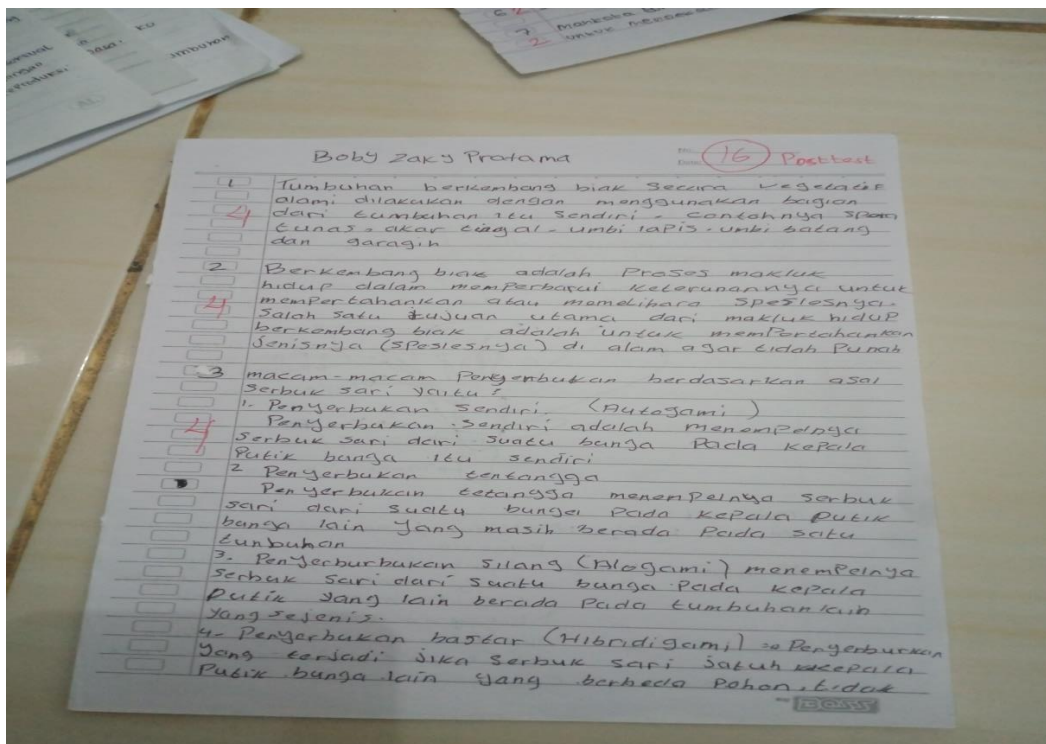 exual
ada.
KU
umbuhan
eproduksi
6 2
7 mahkota
2 untuk
Boby Zaky Pratama
No.
Date
16 Posttest
1 Tumbuhan berkembang biak secara vegetatif
alami dilakukan dengan menggunakan bagian
4 dari tumbuhan itu sendiri - contohnya spora
tunas - akar tinggal - umbi lapis - umbi batang
dan garagih
2 Berkembang biak adalah Proses makluk
hidup dalam memperbarui keterunannya untuk
4 mempertahankan atau memelihara speslesnya.
Salah satu tujuan utama dari makluk hidup
berkembang biak adalah untuk mempertahankan
Jenisnya (speslesnya) di alam agar tidah Punah
3 macam-macam Penyerbukan berdasarkan asal
serbuk sari yaitu :
1. Penyerbukan sendiri. (Autogami)
4 Penyerbukan sendiri adalah menempelnya
serbuk sari dari suatu bunga Pada kepala
Putik bunga itu sendiri
2 Penyerbukan tentangga
Penyerbukan tetangga menempelnya serbuk
sari dari suatu bunga Pada kepala Putik
bunga lain yang masih berada Pada satu
tunbuhan
3. Penyerburbukan silang (Alogami) menempelnya
serbuk sari dari suatu bunga Pada kepala
Putik yang lain berada Pada tumbuhan lain
yang sejenis.
4. Penyerbukan bastar (Hibridigami) => Penyerburkan
yang terjadi jika serbuk sari jatuh kekepala
Putik bunga lain yang berbeda Pohon, tidak
BOSS